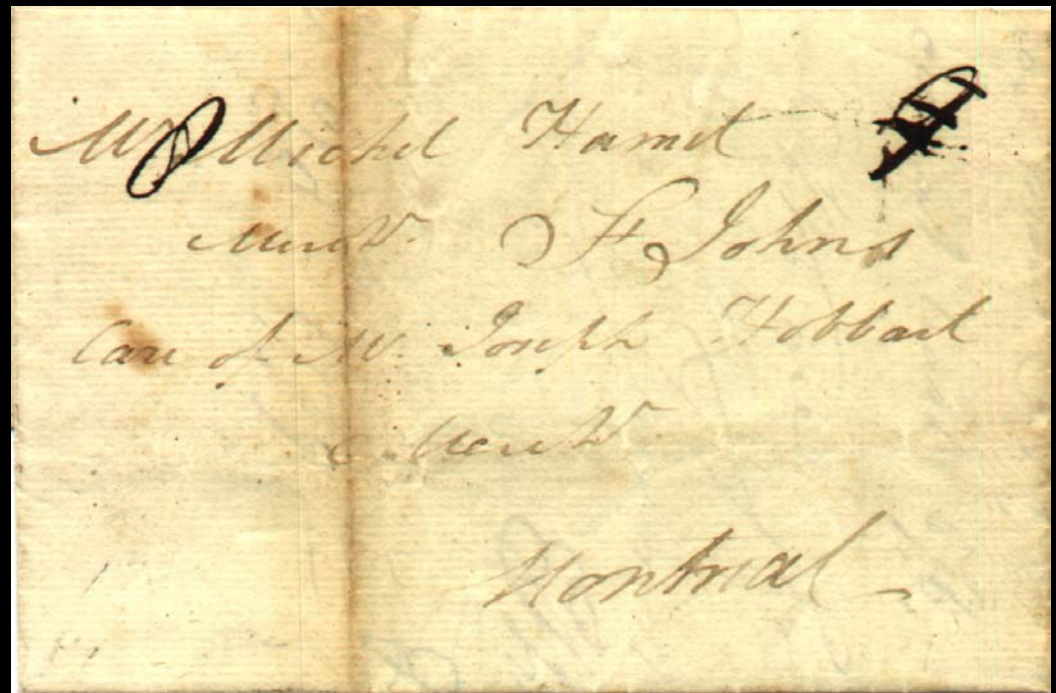 Mr Michel Hamel
Mercht. St Johns
Care of Mr. Joseph Hobbart
Mercht
Montrial